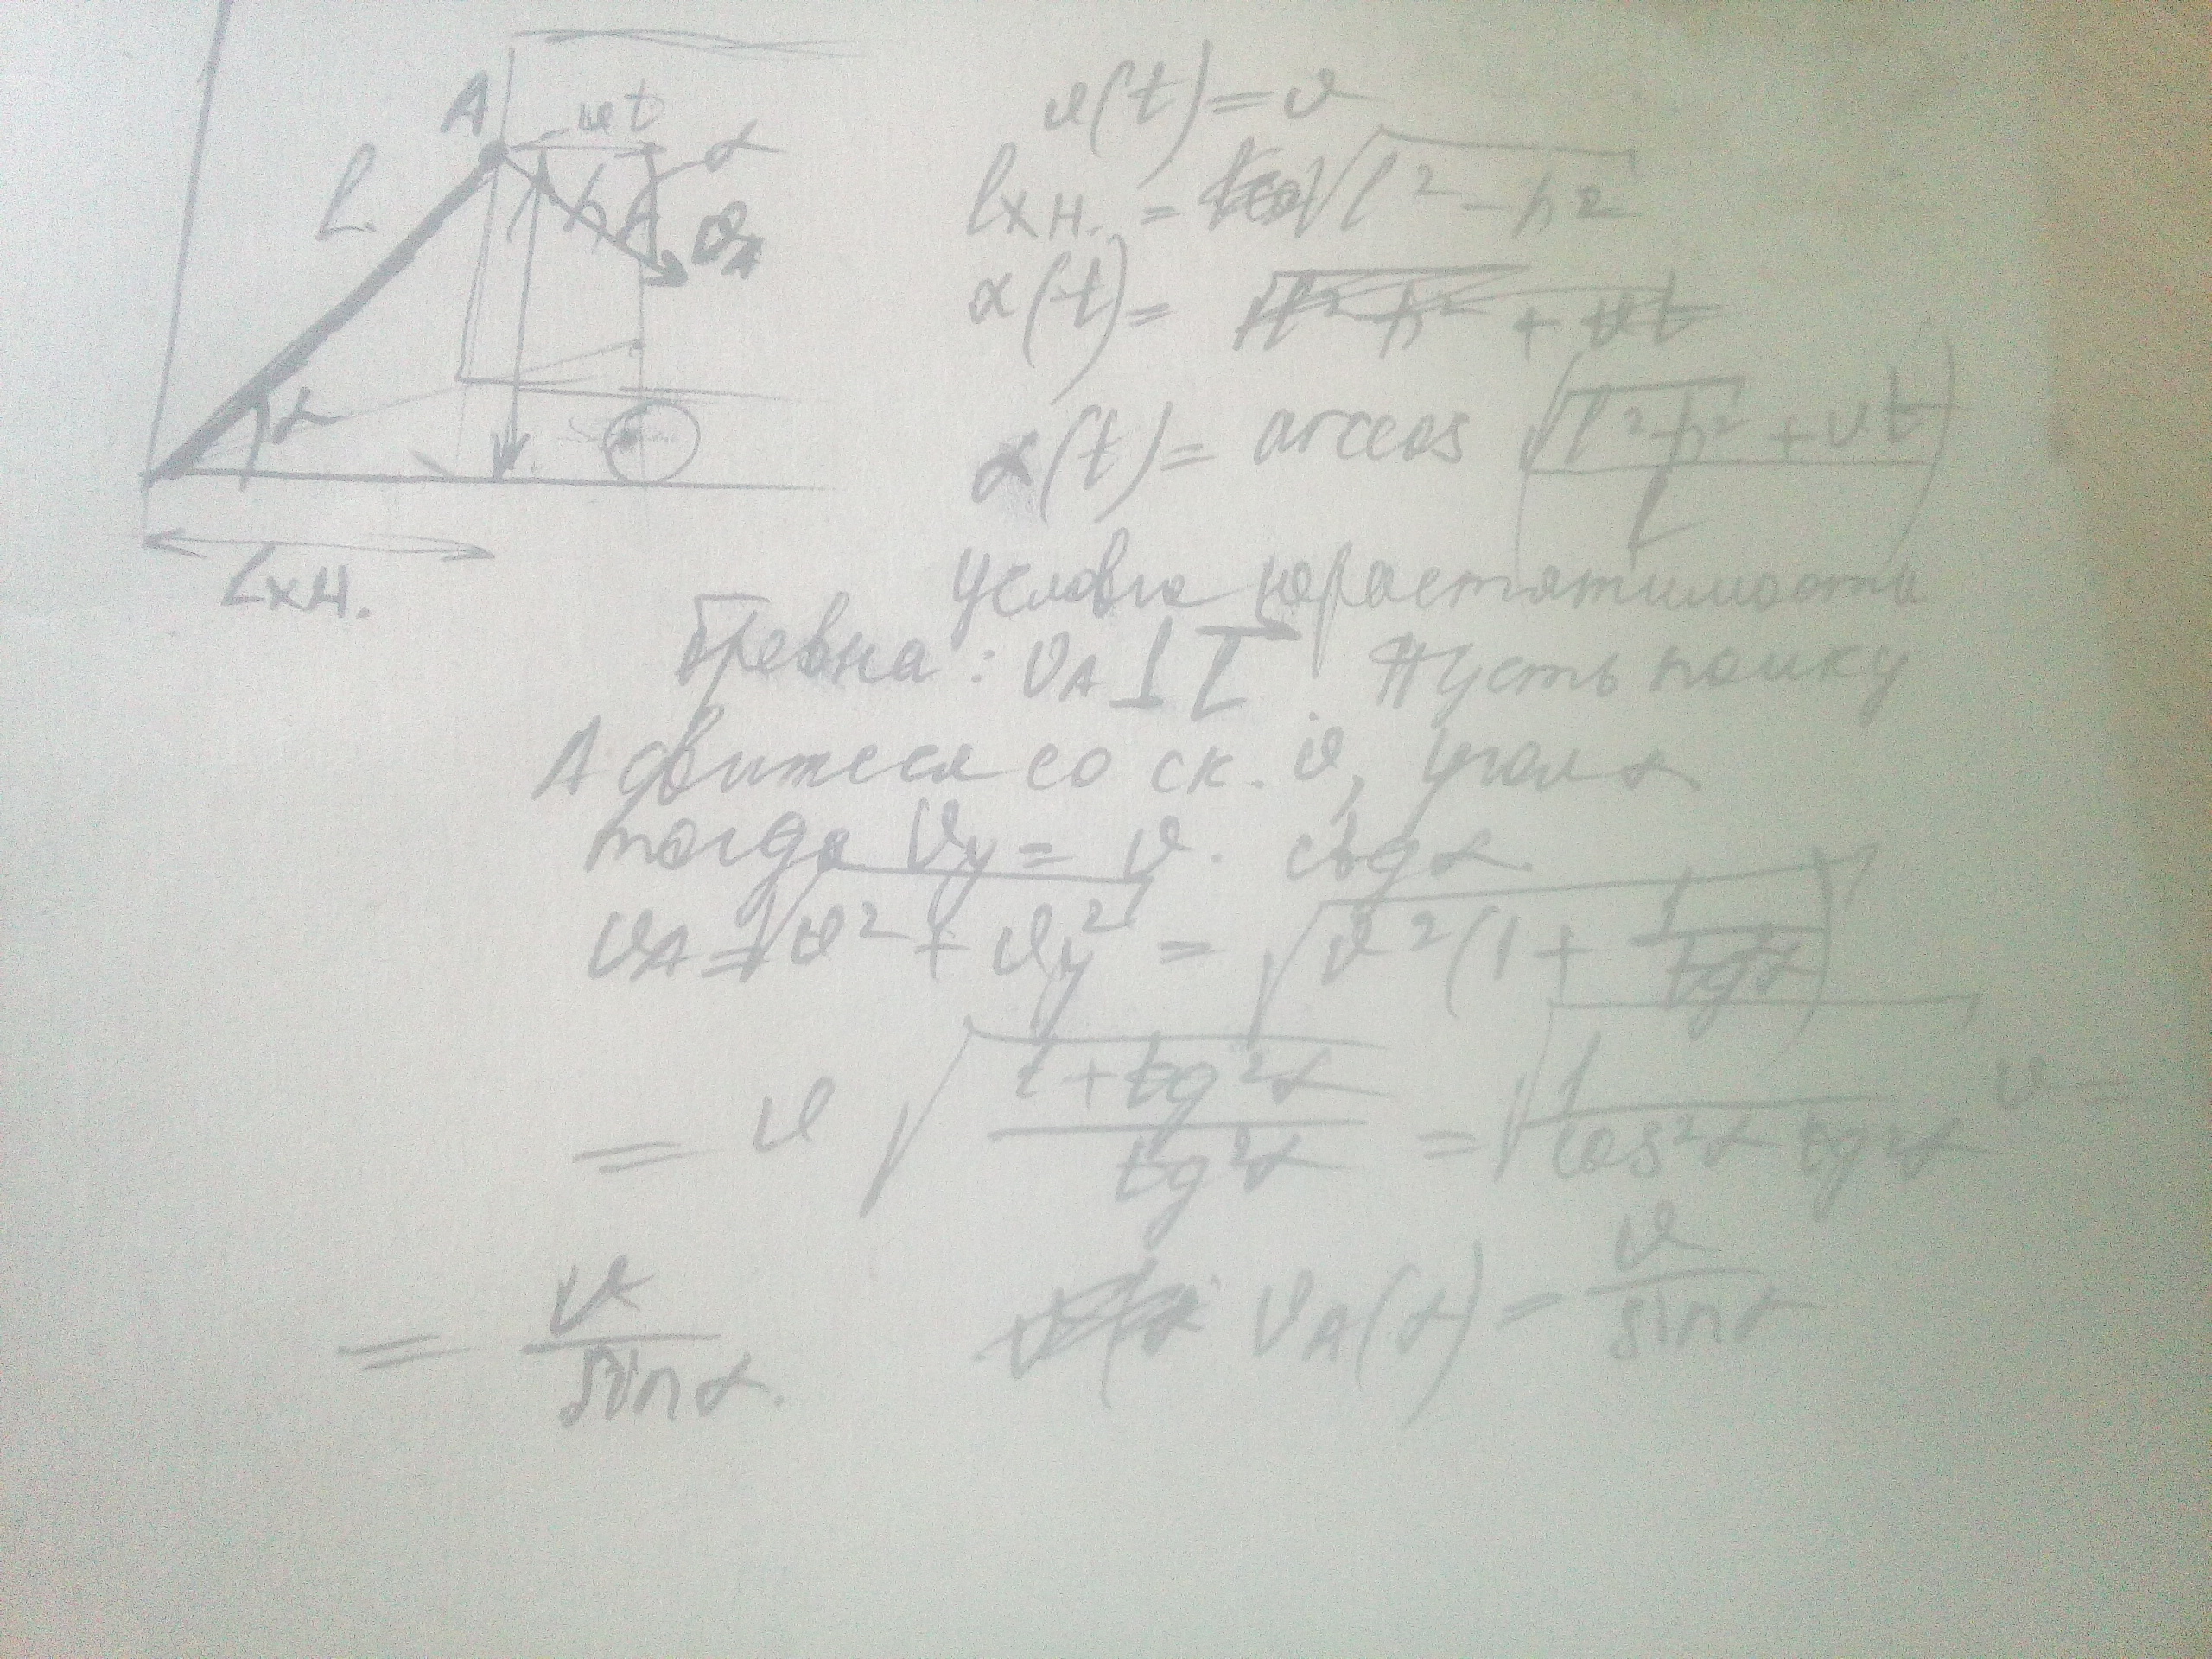 A
vt
α
l.
h
v_A
α
l хн.
v(t) = v
l хн. = √(l² − h²)
α(t) = √(l² − h²) + vt
α(t) = arccos ((√(l² − h²) + vt) / l)
нерастятимости
бревна : v_A ⊥ l⃗. Пусть
A движется со ск. v, угол α
тогда v_y = v · ctg α
v_A = √(v² + v_y²) = √(v²(1 + 1/tg²α))
= v √((1 + tg²α) / tg²α) = √(1 / (cos²α tg²α)) v =
= v / sin α. v_A(α) = v / sin α